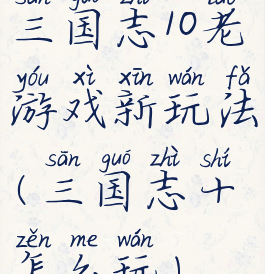 三国志10老
yóu xì xīn wán fǎ
游戏新玩法
sān guó zhì shí
(三国志十
zěn me wán
怎么玩)